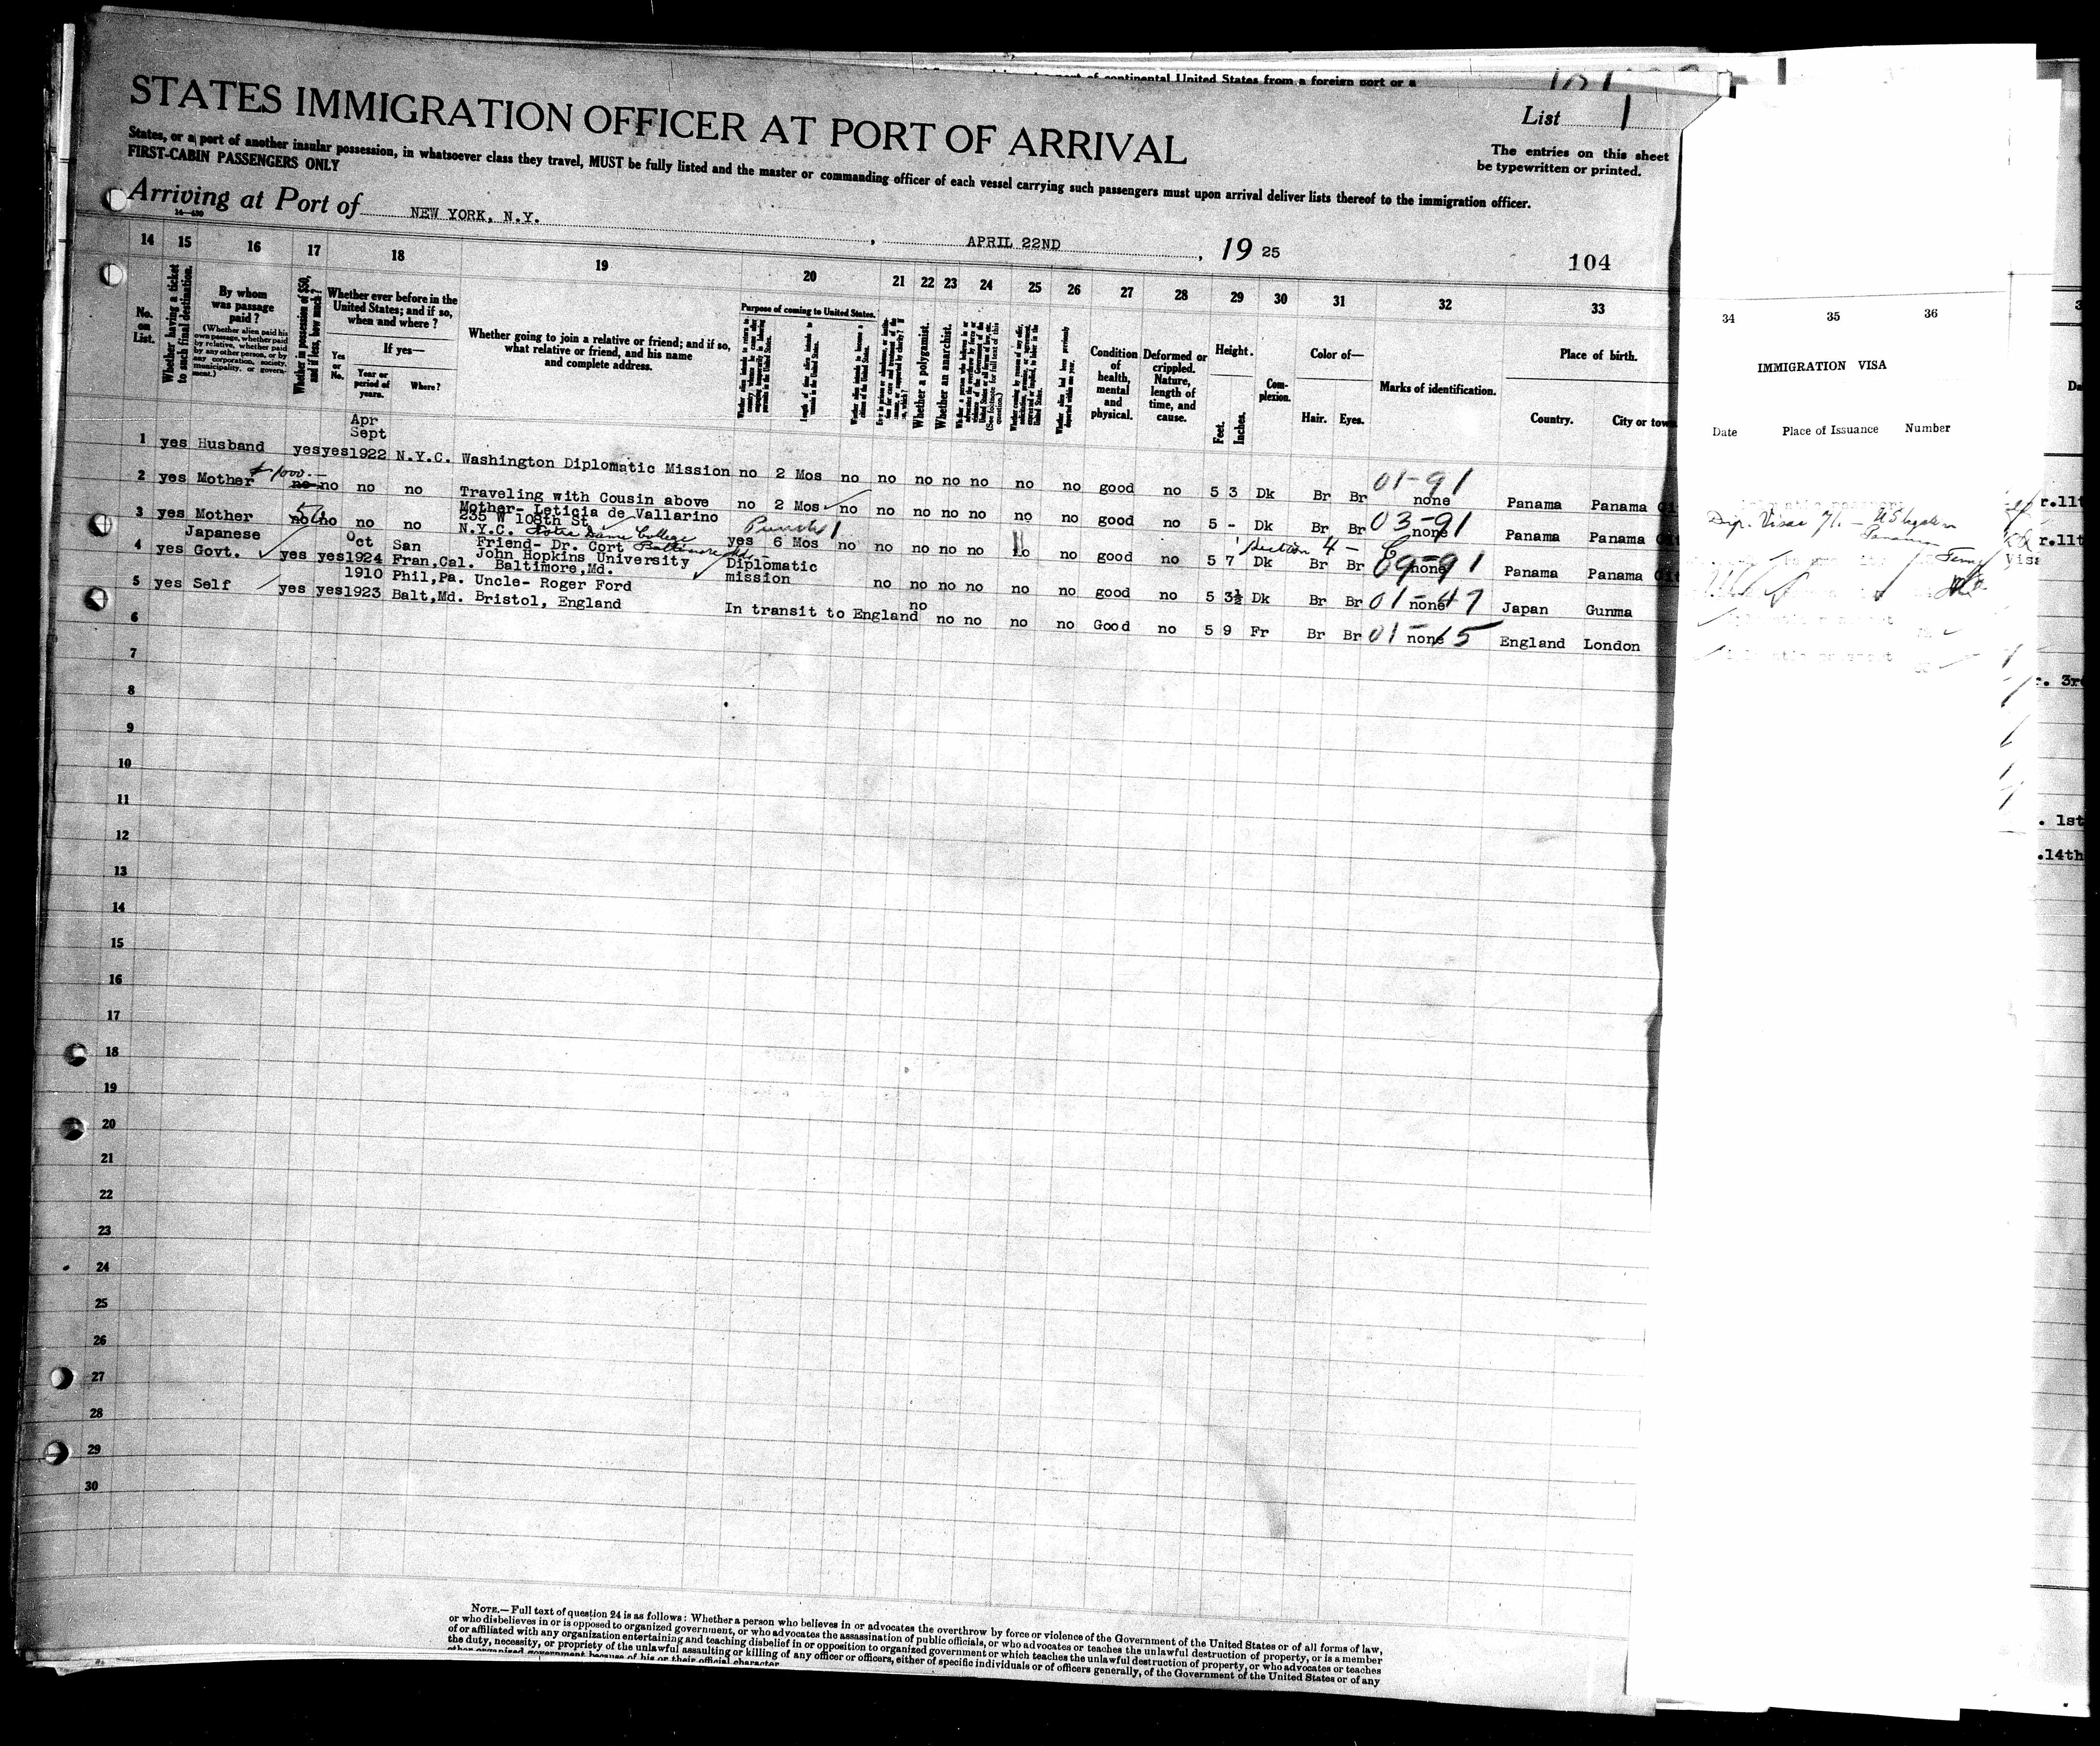 of continental United States from a foreign port or a
STATES IMMIGRATION OFFICER AT PORT OF ARRIVAL
List 1
States, or a port of another insular possession, in whatsoever class they travel, MUST be fully listed and the master or commanding officer of each vessel carrying such passengers must upon arrival deliver lists thereof to the immigration officer.
FIRST-CABIN PASSENGERS ONLY
The entries on this sheet
be typewritten or printed.
Arriving at Port of NEW YORK, N.Y. , APRIL 22ND , 19 25
104
14 15 16 17 18 19 20 21 22 23 24 25 26 27 28 29 30 31 32 33 34 35 36
No. on List.
Whether having a ticket to such final destination.
By whom was passage paid?
(Whether alien paid his own passage, whether paid by relative, whether paid by any other person, or by any corporation, society, municipality, or government.)
Whether in possession of $50, and if less, how much?
Whether ever before in the United States; and if so, when and where?
Yes or No.
If yes—
Year or period of years.
Where?
Whether going to join a relative or friend; and if so, what relative or friend, and his name and complete address.
Purpose of coming to United States.
Length of time alien intends to remain in the United States.
Whether a polygamist.
Whether an anarchist.
Condition of health, mental and physical.
Deformed or crippled. Nature, length of time, and cause.
Height.
Feet. Inches.
Complexion.
Color of—
Hair. Eyes.
Marks of identification.
Place of birth.
Country. City or tow
IMMIGRATION VISA
Date Place of Issuance Number
Apr
Sept
1 yes Husband yes yes 1922 N.Y.C. Washington Diplomatic Mission no 2 Mos no no no no no no no good no 5 3 Dk Br Br 01-91 none Panama Panama
$1000.—
2 yes Mother no no no no Traveling with Cousin above no 2 Mos no no no no no no no good no 5 - Dk Br Br 03-91 none Panama Panama
Mother- Leticia de Vallarino
3 yes Mother 50 no no no no 235 W 108th St
N.Y.C. Notre Dame College Baltimore Md. yes 6 Mos no no no no no no no good no 5 7 Dk Br Br 09-91 none Panama Panama
Section 4 - E
Japanese Oct San Friend- Dr. Cort
4 yes Govt. yes yes 1924 Fran,Cal. John Hopkins University Diplomatic
Baltimore,Md. mission no no no no no no good no 5 3½ Dk Br Br 01-47 none Japan Gunma
1910 Phil,Pa. Uncle- Roger Ford
5 yes Self yes yes 1923 Balt,Md. Bristol, England In transit to England no no no no no Good no 5 9 Fr Br Br 01-15 none England London
6
7
8
9
10
11
12
13
14
15
16
17
18
19
20
21
22
23
24
25
26
27
28
29
30
r.11t
r.11t
Visa
. 3r
. 1st
.14th
NOTE.—Full text of question 24 is as follows: Whether a person who believes in or advocates the overthrow by force or violence of the Government of the United States or of all forms of law,
or who disbelieves in or is opposed to organized government, or who advocates the assassination of public officials, or who advocates or teaches the unlawful destruction of property, or is a member
of or affiliated with any organization entertaining and teaching disbelief in or opposition to organized government or which teaches the unlawful destruction of property, or who advocates or teaches
the duty, necessity, or propriety of the unlawful assaulting or killing of any officer or officers, either of specific individuals or of officers generally, of the Government of the United States or of any
other organized government because of his or their official character